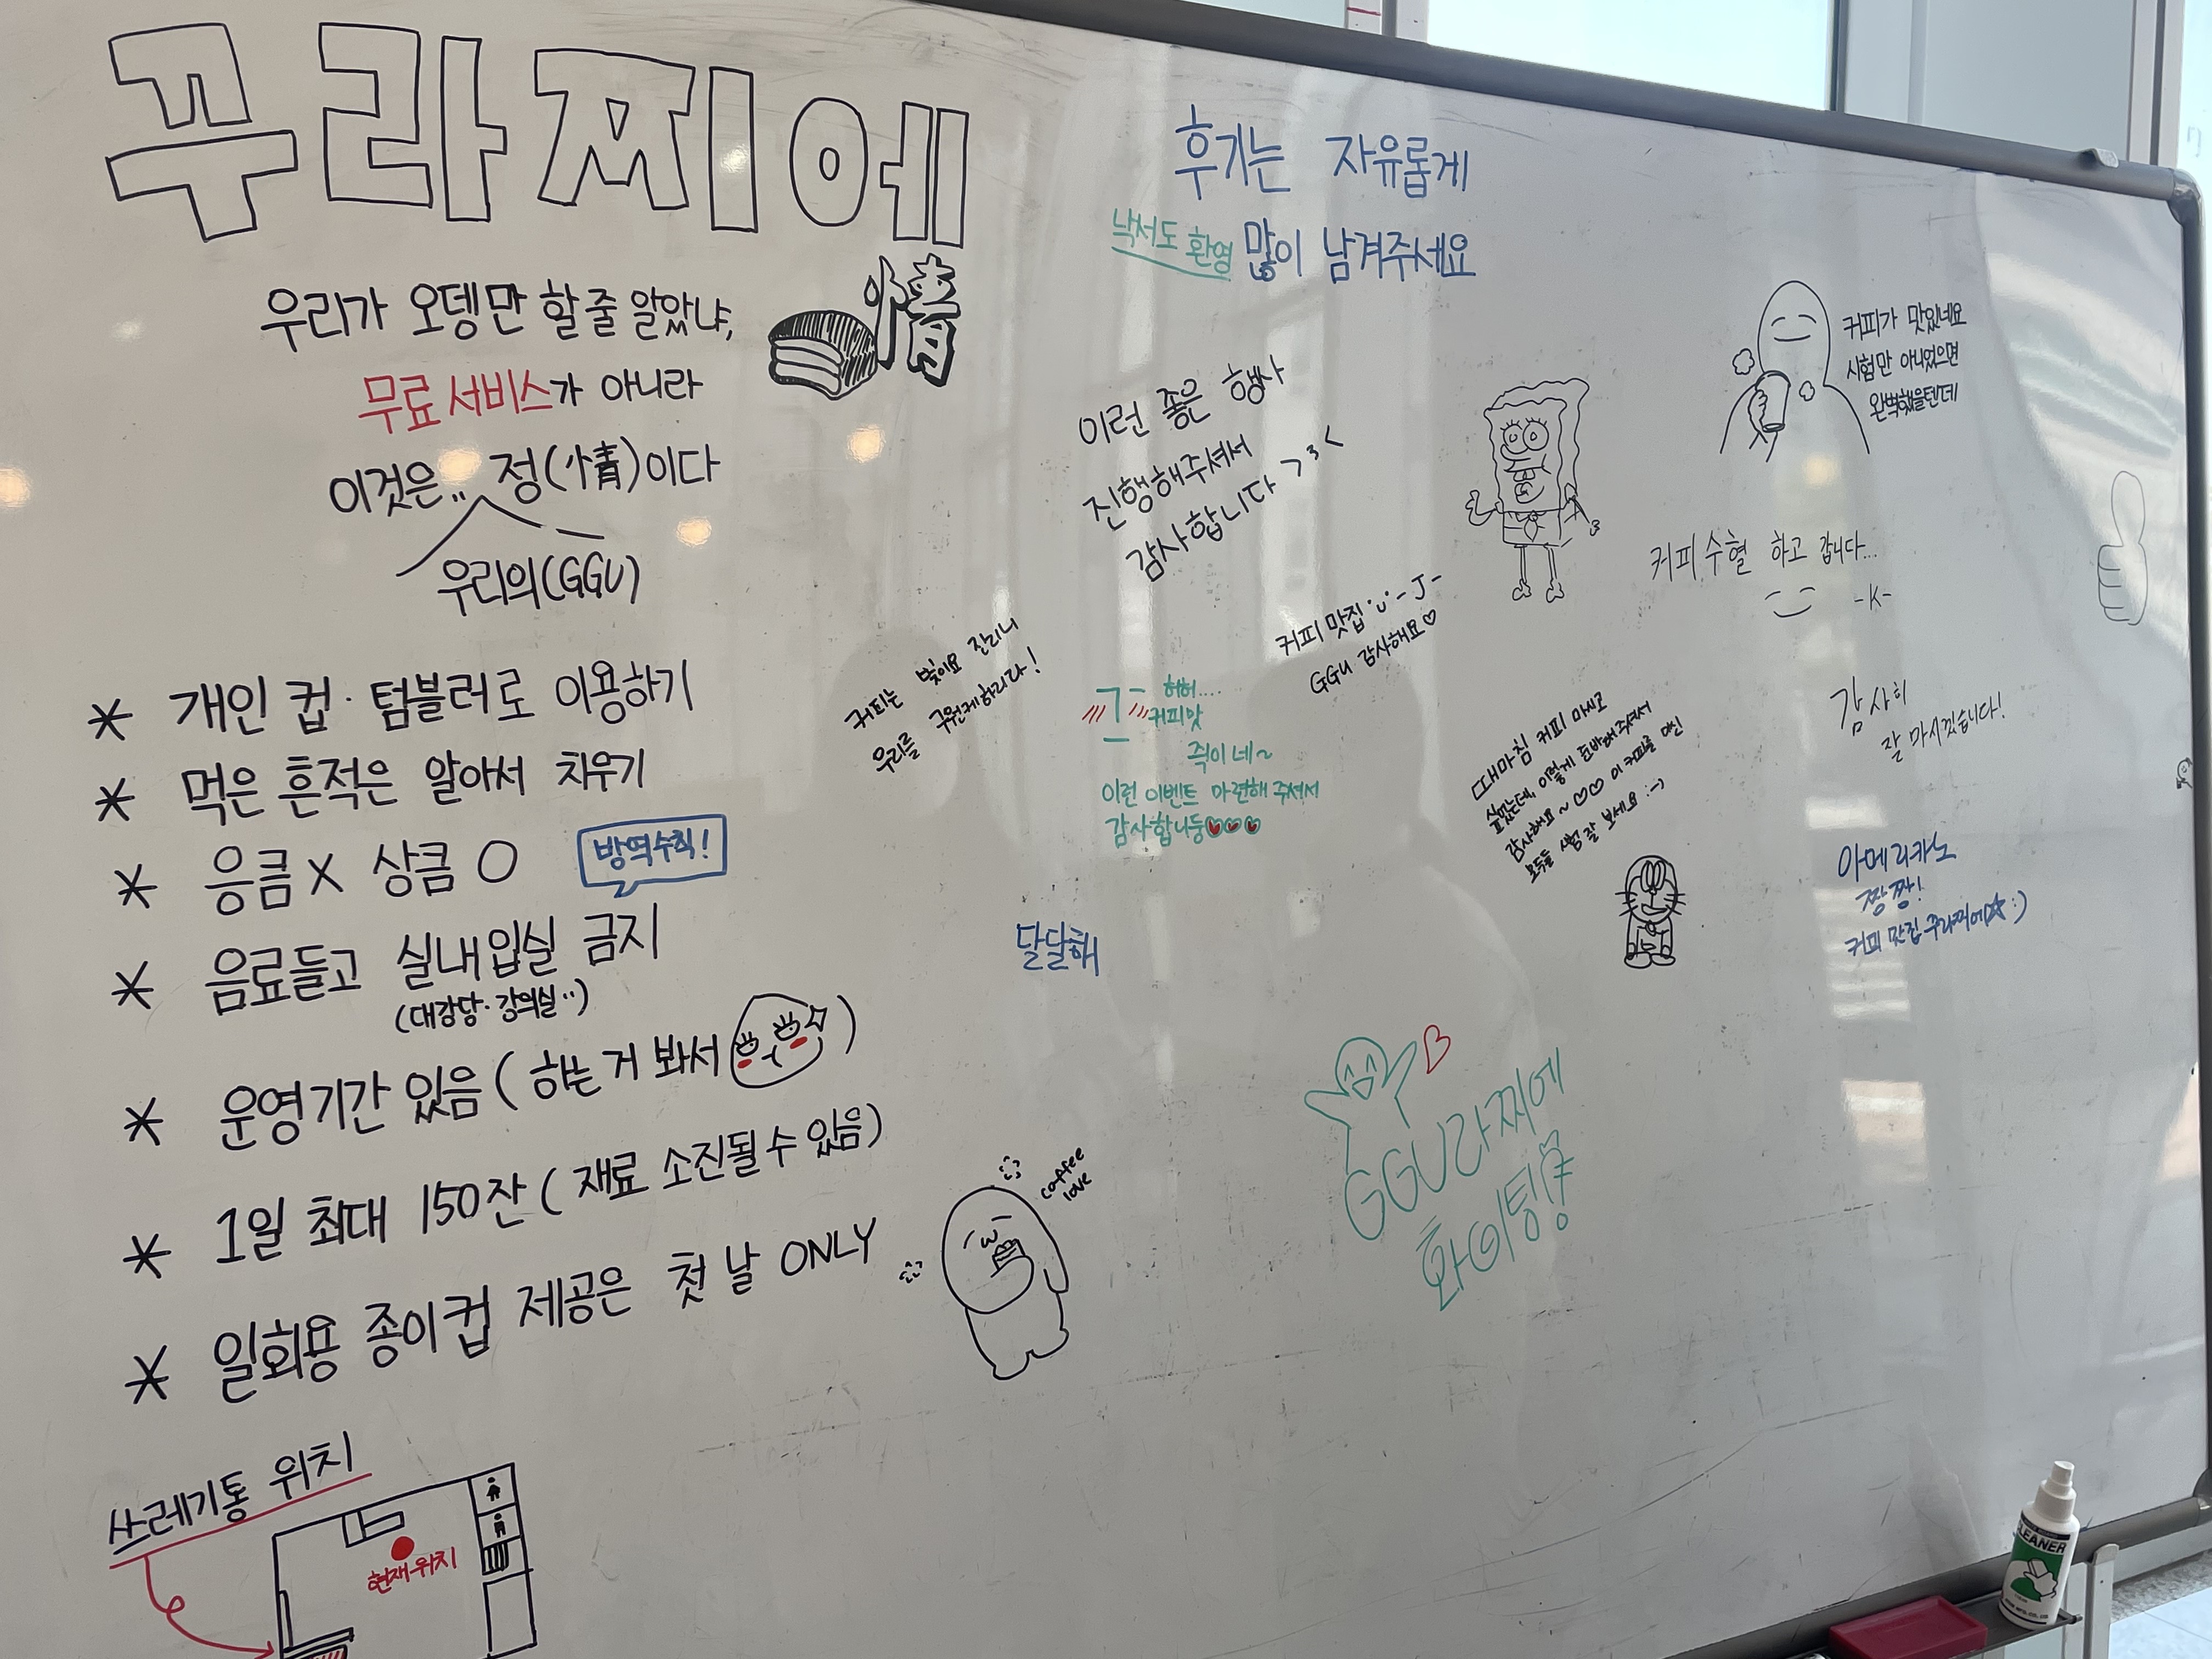 꾸라찌에
우리가 오뎅만 할 줄 알았냐,
情
무료 서비스가 아니라
이것은.. 정(情)이다
우리의(GGU)
* 개인 컵·텀블러로 이용하기
* 먹은 흔적은 알아서 치우기
* 응큼 X 상큼 O
방역수칙!
* 음료들고 실내입실 금지
(대강당·강의실··)
* 운영기간 있음 ( 하는 거 봐서 )
* 1일 최대 150잔 ( 재료 소진될 수 있음)
* 일회용 종이컵 제공은 첫 날 ONLY
coffee
love
쓰레기통 위치
현재위치
후기는 자유롭게
낙서도 환영 많이 남겨주세요
이런 좋은 행사
진행해주셔서
감사합니다 >3<
커피가 맛있네요
시험만 아니었으면
완벽했을텐데
커피수혈 하고 갑니다...
-K-
커피 맛집 ·u· -J-
GGU 감사해요♡
커피는 빛이요 진리니
우리를 구원케하리다!
허허....
커피맛
쥑이네~
이런 이벤트 마련해 주셔서
감사합니둥♡♡♡
때마침 커피 마시고
싶었는데, 이렇게 준비해주셔서
감사해요~♡♡ 이 커피를 마신
모두들 시험 잘 보세요 :-)
감사히
잘 마시겠습니다!
아메리카노
짱짱!
커피 맛집 꾸라찌에☆:)
달달해
GGU라찌에
화이팅!
CLEANER